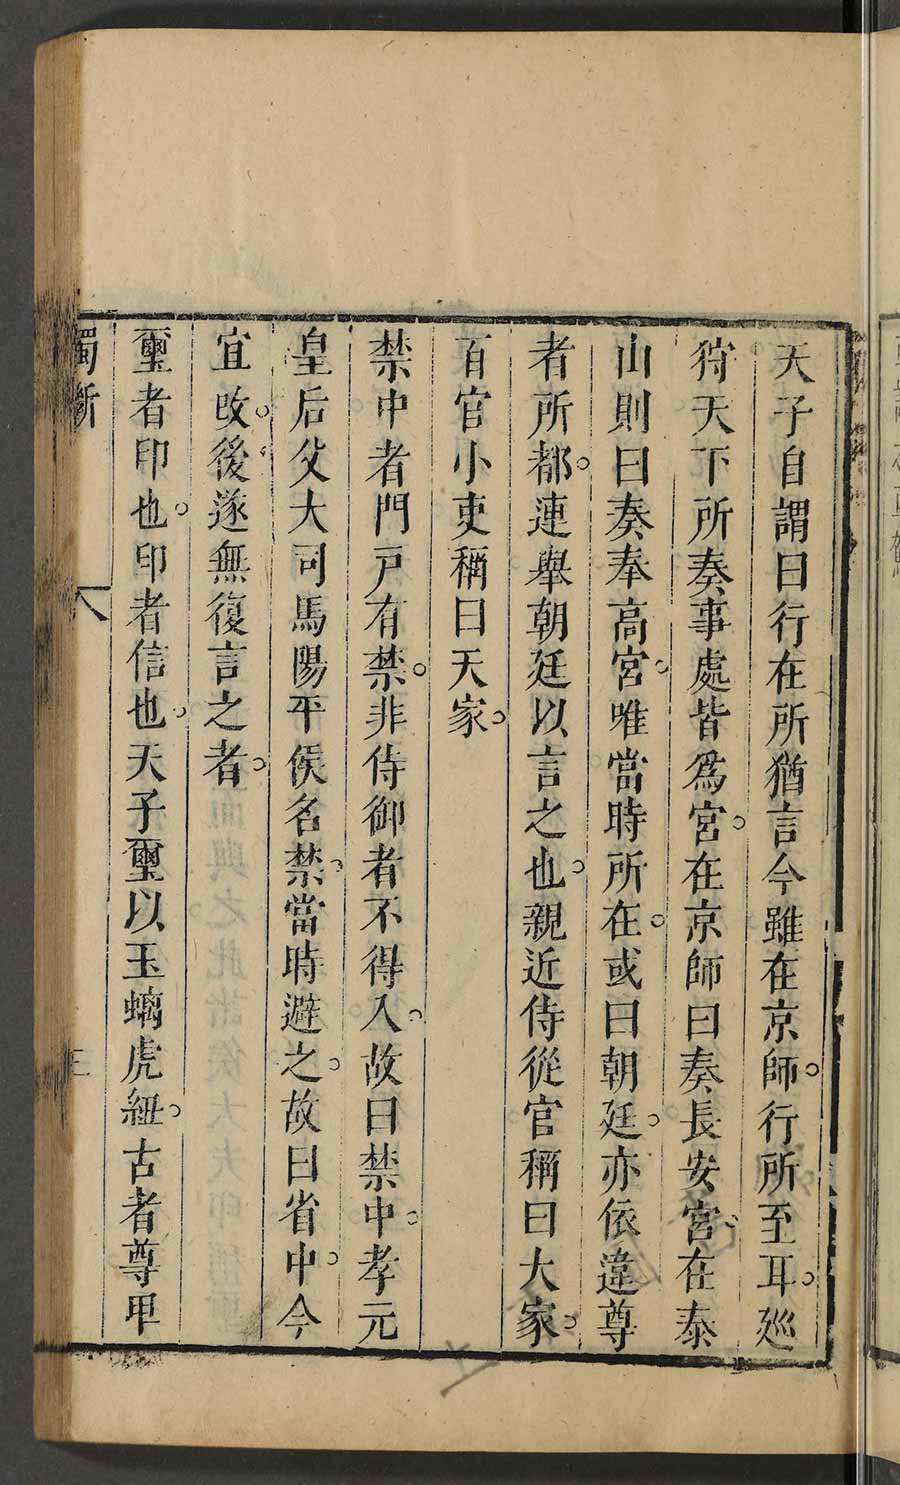 天子自謂曰行在所猶言今雖在京師。行所至耳。巡
狩天下所奏事處皆爲宮。在京師曰奏長安宮。在泰
山則曰奏奉高宮。唯當時所在。或曰朝廷。亦依違尊
者所都。連舉朝廷以言之也。親近侍從官稱曰大家。
百官小吏稱曰天家。
禁中者門戸有禁。非侍御者不得入。故曰禁中。孝元
皇后父大司馬陽平侯名禁。當時避之。故曰省中。今
宜改。後遂無復言之者。
璽者印也。印者信也。天子璽以玉螭虎紐。古者尊卑
獨斷